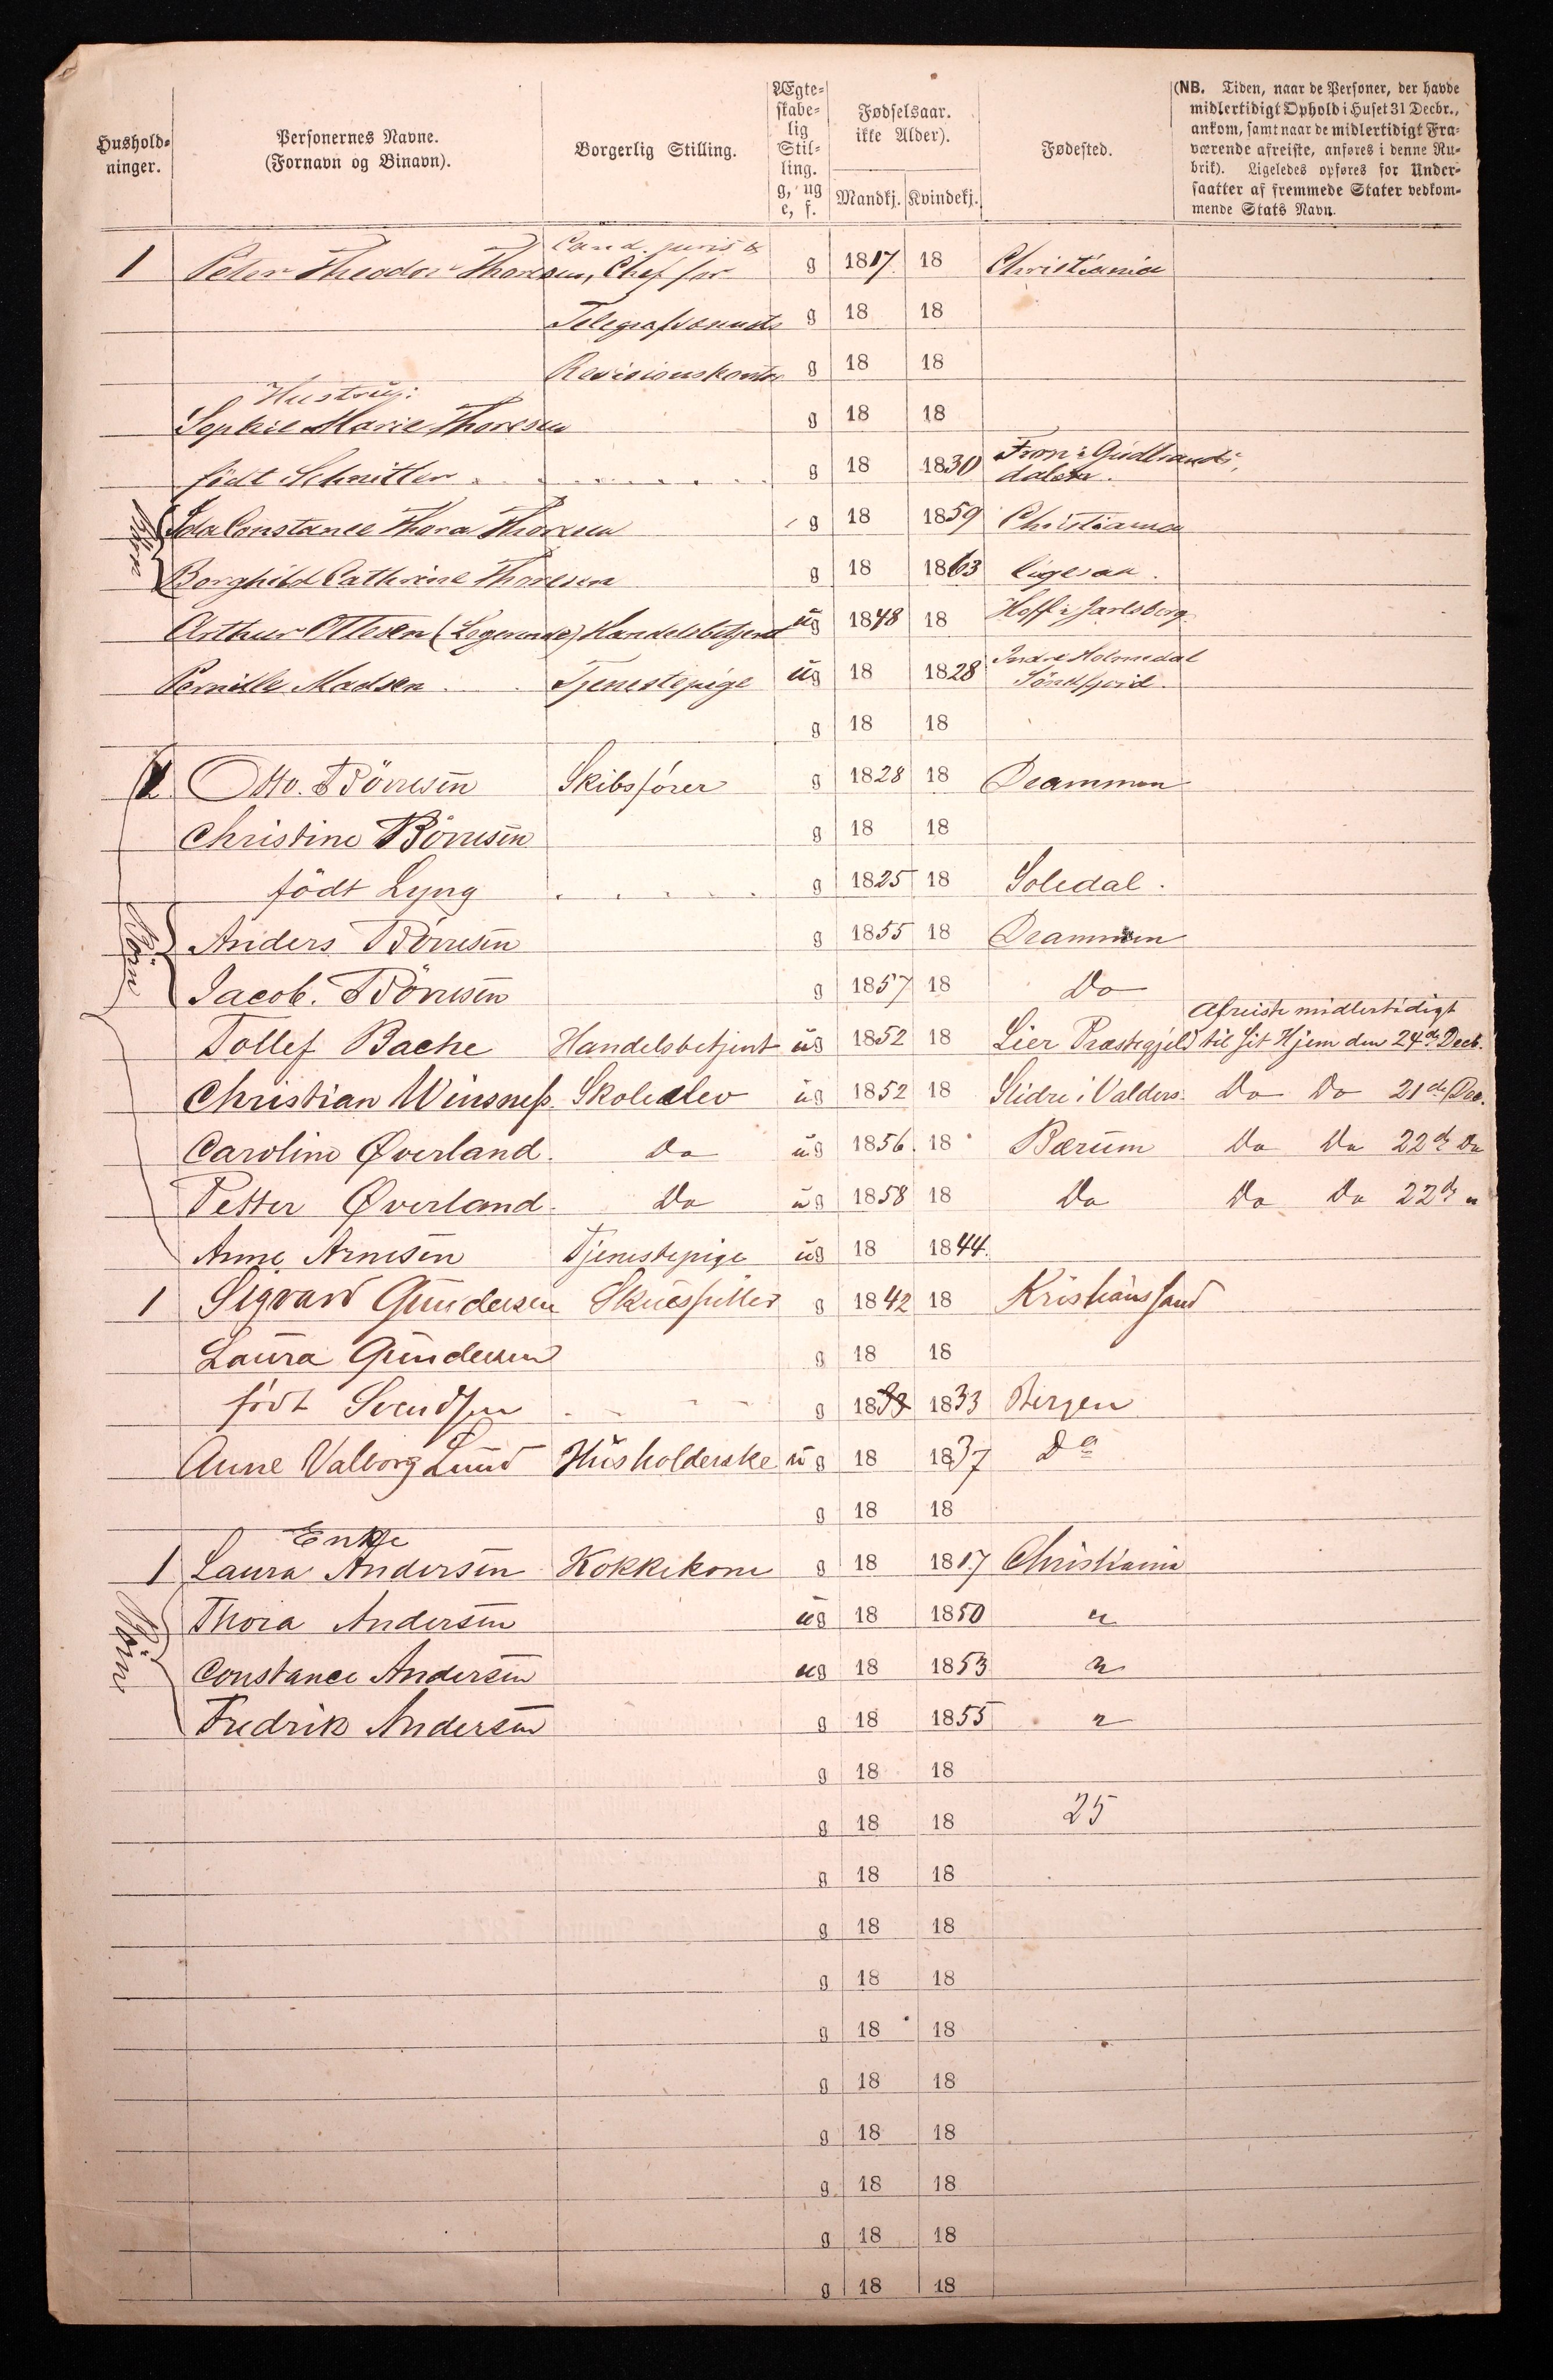 Hushold-
ninger.
Personernes Navne.
(Fornavn og Binavn).
Borgerlig Stilling.
Ægte-
skabe-
lig
Stil-
ling.
g, ug
e, f.
Fødselsaar.
ikke Alder).
Mandkj. Kvindekj.
Fødested.
(NB. Tiden, naar de Personer, der havde
midlertidigt Ophold i Huset 31 Decbr.,
ankom, samt naar de midlertidigt Fra-
værende afreiste, anføres i denne Ru-
brik). Ligeledes opføres for Under-
saatter af fremmede Stater vedkom-
mende Stats Navn.
Cand. juris &
1 Peter Theodor Thoresen, Chef for g 1817 18 Christiania
Telegrafvæsnets g 18 18
Revisionskontor g 18 18
Hustru:
Sophie Marie Thoresen g 18 18
født Schnitler g 18 1830 Fron i Gudbrands-
dalen.
Børn
Ida Constance Thora Thoresen g 18 1859 Christiania
Borghild Cathrine Thoresen g 18 1863 ligesaa.
Arthur Ottesen (Logerende) Handelsbetjent ug 1848 18 Hoff i Jarlsberg
Pernille Madsen Tjenestepige ug 18 1828 Indre Holmedal
Söndfjord.
g 18 18
1 Otto. Börresen Skibsfører g 1828 18 Drammen
Christine Börresen g 18 18
födt Lyng g 1825 18 Soledal.
Börn
Anders Börresen g 1855 18 Drammen
Jacob. Börresen g 1857 18 Do
Afreiste midlertidigt
Tollef Bache Handelsbetjent ug 1852 18 Lier Præstegjeld til sit Hjem den 24de Decb.
Christian Winsness Skoleelev ug 1852 18 Slidre i Valders. Do Do 21de Dec.
Caroline Øverland. Do ug 1856. 18 Bærum Do Do 22de Do
Petter Øverland. Do ug 1858 18 Do Do Do 22de "
Anne Arnesen Tjenestepige ug 18 1844.
1 Sigvard Gundersen Skuespiller g 1842 18 Kristianssand
Laura Gundersen g 18 18
født Svendsen g 1833 1833 Bergen
Anne Valborg Lund Husholderske ug 18 1837 Do
g 18 18
Enke
1 Laura Andersen Kokkekone g 18 1817 Christiania
Börn
Thora Andersen ug 18 1850 "
Constance Andersen ug 18 1853 "
Fredrik Andersen g 18 1855 "
g 18 18
g 18 18 25
g 18 18
g 18 18
g 18 18
g 18 18
g 18 18
g 18 18
g 18 18
g 18 18
g 18 18